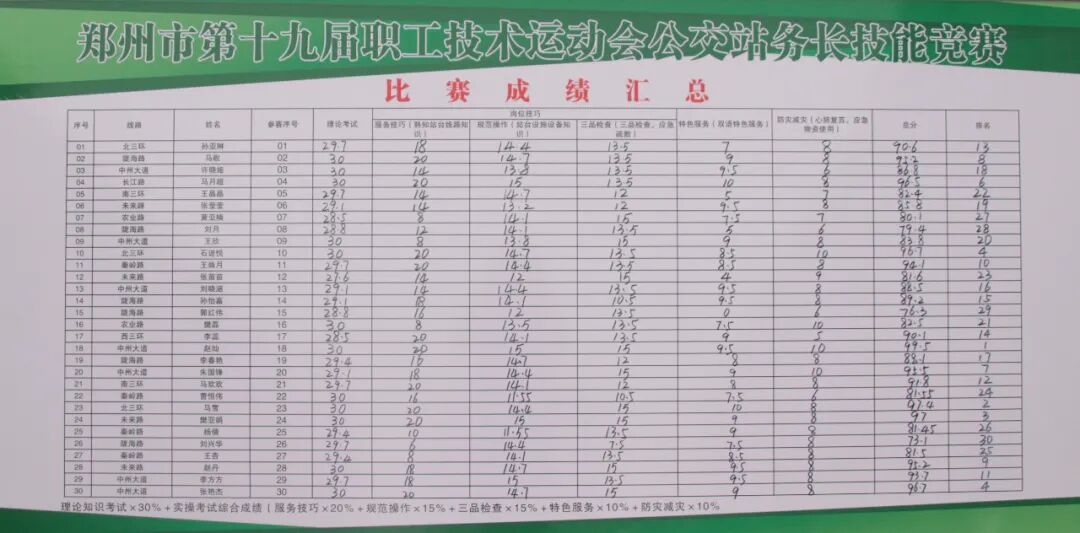 郑州市第十九届职工技术运动会公交站务长技能竞赛
比赛成绩汇总
序号 线路 姓名 参赛序号 理论考试 岗位技巧 总分 排名
服务技巧（熟知站台线路知识） 规范操作（站台设施设备知识） 三品检查（三品检查、应急疏散） 特色服务（双语特色服务） 防灾减灾（心肺复苏、应急物资使用）
01 北三环 孙亚琳 01 29.7 18 14.4 13.5 7 8 90.6 13
02 陇海路 马敏 02 30 20 14.7 13.5 9 8 95.2 8
03 中州大道 许晓姬 03 30 14 13.8 13.5 9.5 6 86.8 18
04 长江路 马月超 04 30 20 15 13.5 10 8 96.5 6
05 南三环 王晶晶 05 29.7 14 14.7 12 5 7 82.4 22
06 未来路 张莹莹 06 29.1 14 13.2 12 9.5 8 85.8 19
07 农业路 黄亚楠 07 28.5 8 14.1 15 7.5 7 80.1 27
08 陇海路 刘月 08 28.8 12 14.1 13.5 5 6 79.4 28
09 中州大道 王欣 09 30 8 13.8 15 9 8 83.8 20
10 北三环 石进悦 10 30 20 14.7 13.5 8.5 10 96.7 4
11 秦岭路 王姝月 11 29.7 20 14.4 13.5 8.5 8 94.1 10
12 未来路 张苗苗 12 27.6 14 12 15 4 9 81.6 23
13 中州大道 刘晓港 13 29.1 14 14.4 13.5 9.5 8 88.5 16
14 陇海路 孙怡嘉 14 29.1 18 14.1 10.5 9.5 8 89.2 15
15 陇海路 郭红伟 15 28.8 16 12 13.5 0 6 76.3 29
16 农业路 樊磊 16 30 8 13.5 13.5 7.5 10 82.5 21
17 西三环 李蕊 17 28.5 20 14.1 13.5 9 5 90.1 14
18 中州大道 赵灿 18 30 20 15 15 9.5 10 99.5 1
19 陇海路 李春艳 19 29.4 16 14.7 12 8 8 88.1 17
20 中州大道 朱国锋 20 29.1 18 14.4 15 9 10 95.5 7
21 南三环 马欢欢 21 29.7 20 14.1 12 8 8 91.8 12
22 秦岭路 曹恒伟 22 30 16 11.55 10.5 7.5 6 81.55 24
23 北三环 马雪 23 30 20 14.4 15 10 8 97.4 2
24 未来路 樊亚鸽 24 30 20 15 15 9 8 97 3
25 秦岭路 杨倩 25 29.4 10 11.55 13.5 9 8 81.45 26
26 陇海路 刘兴华 26 29.7 6 14.4 7.5 7.5 8 73.1 30
27 秦岭路 王杏 27 29.4 8 14.1 13.5 8.5 8 81.5 25
28 未来路 赵丹 28 30 18 14.7 15 9.5 8 95.2 9
29 中州大道 李方方 29 29.7 18 15 13.5 9.5 8 93.7 11
30 中州大道 张艳杰 30 30 20 14.7 15 9 8 96.7 4
理论知识考试×30%+实操考试综合成绩（服务技巧×20%+规范操作×15%+三品检查×15%+特色服务×10%+防灾减灾×10%